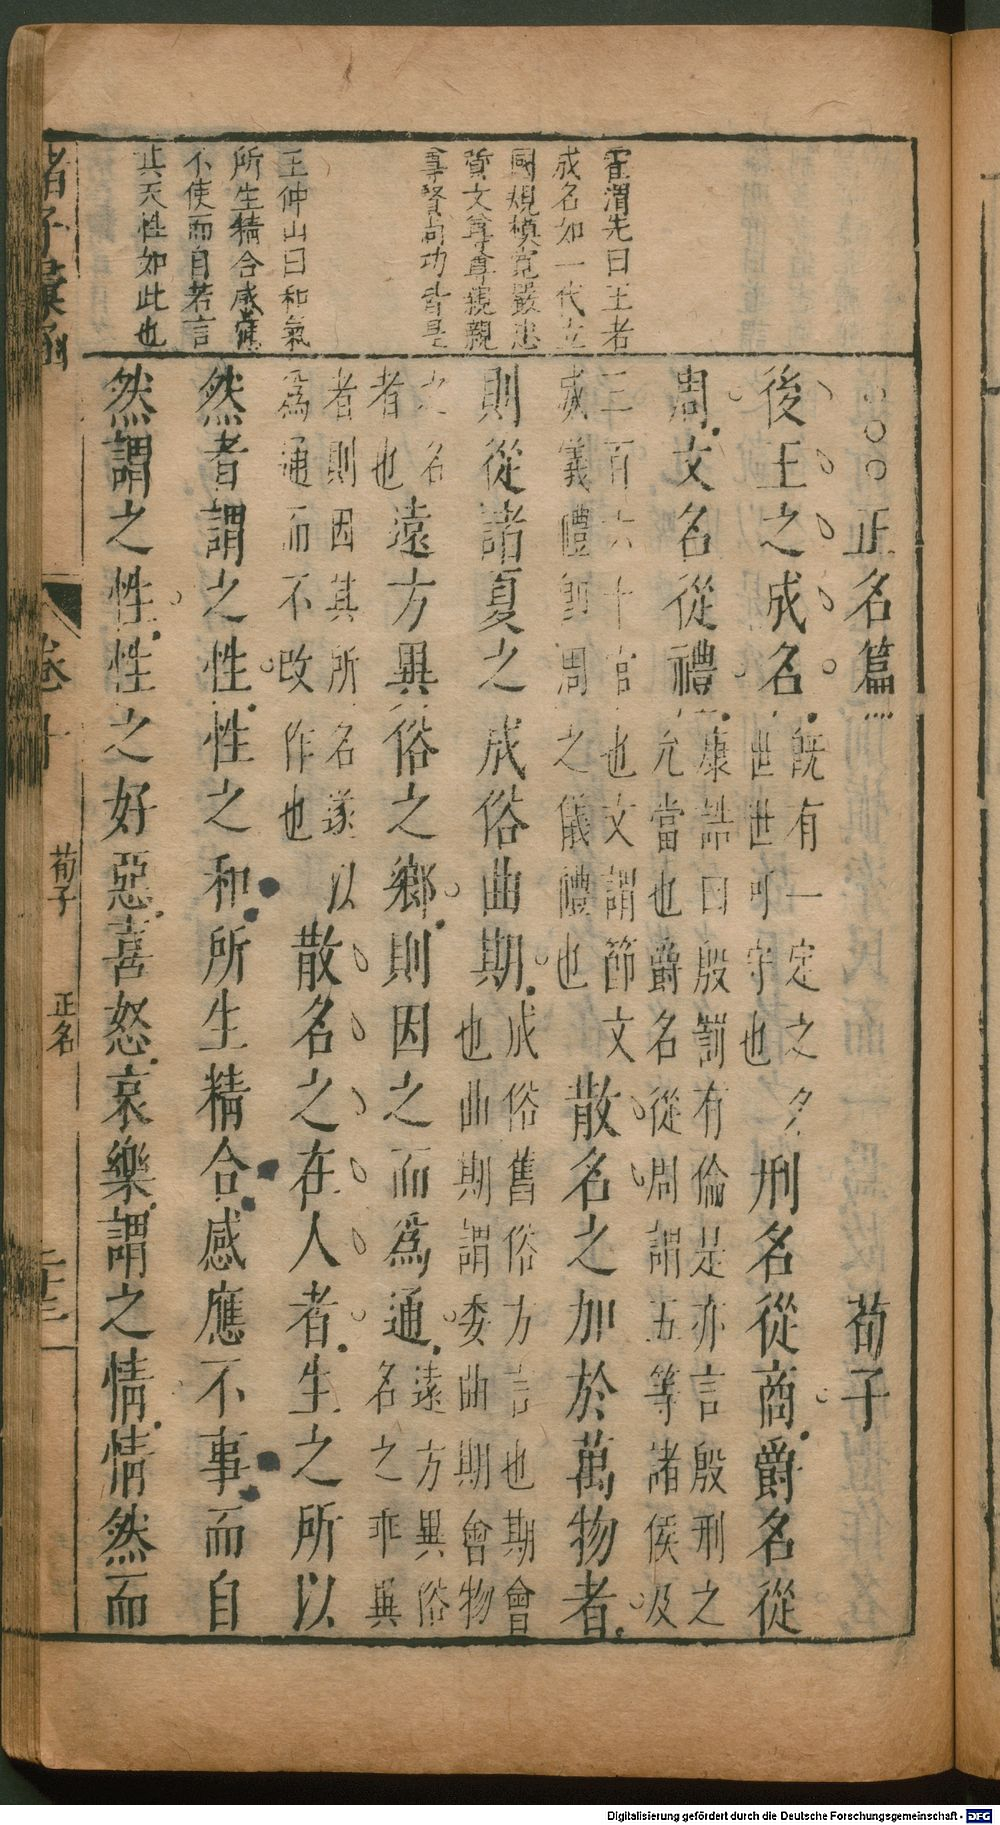 霍渭先曰王者
成名如一代立
國規模寬嚴忠
質文尊尊親親
尊賢尚功皆是
王仲山曰和氣
所生精合感應
不使而自若言
其天性如此也
○○○正名篇 荀子
後王之成名旣有一定之名世世可守也刑名從商爵名從
周文名從禮康誥曰殷罰有倫是亦言殷刑之允當也爵名從周謂五等諸侯及
三百六十官也文謂節文威儀禮即周之儀禮也散名之加於萬物者
則從諸夏之成俗曲期成俗舊俗方言也期會也曲期謂委曲期會物
之名者也遠方異俗之鄉則因之而爲通遠方異俗名之乖異
者則因其所名遂以爲通而不改作也散名之在人者生之所以
然者謂之性性之和所生精合感應不事而自
然謂之性性之好惡喜怒哀樂謂之情情然而
諸子彙函 卷十 荀子 正名
Digitalisierung gefördert durch die Deutsche Forschungsgemeinschaft - DFG